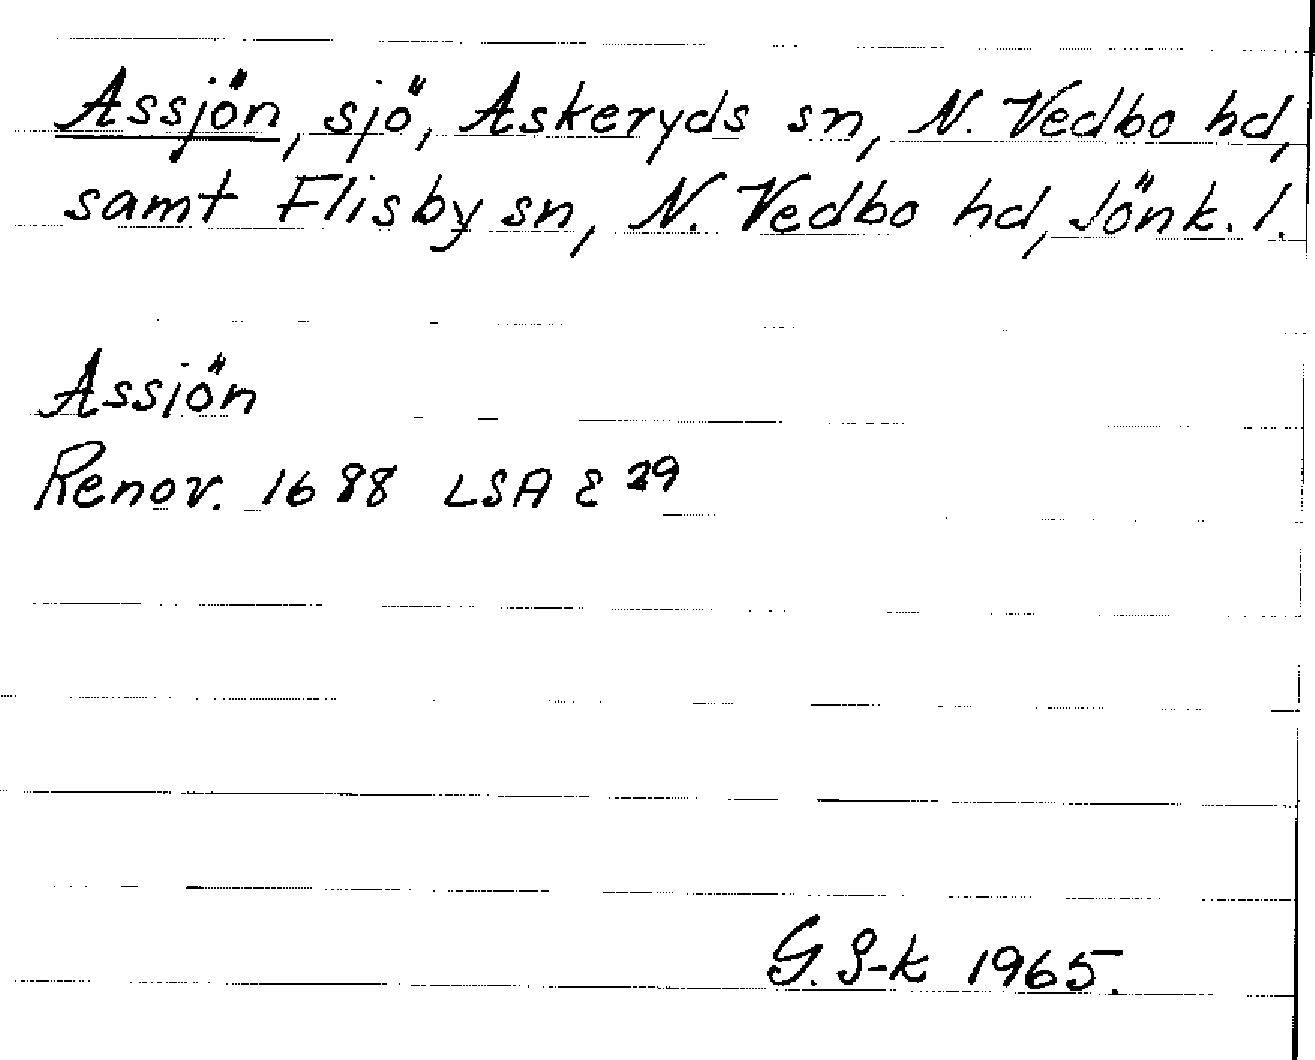 Assjön, sjö, Askeryds sn, N. Vedbo hd,
samt Flisby sn, N. Vedbo hd, Jönk. l.
Assiön
Renov. 1688 LSA E 29
G. S-k 1965.